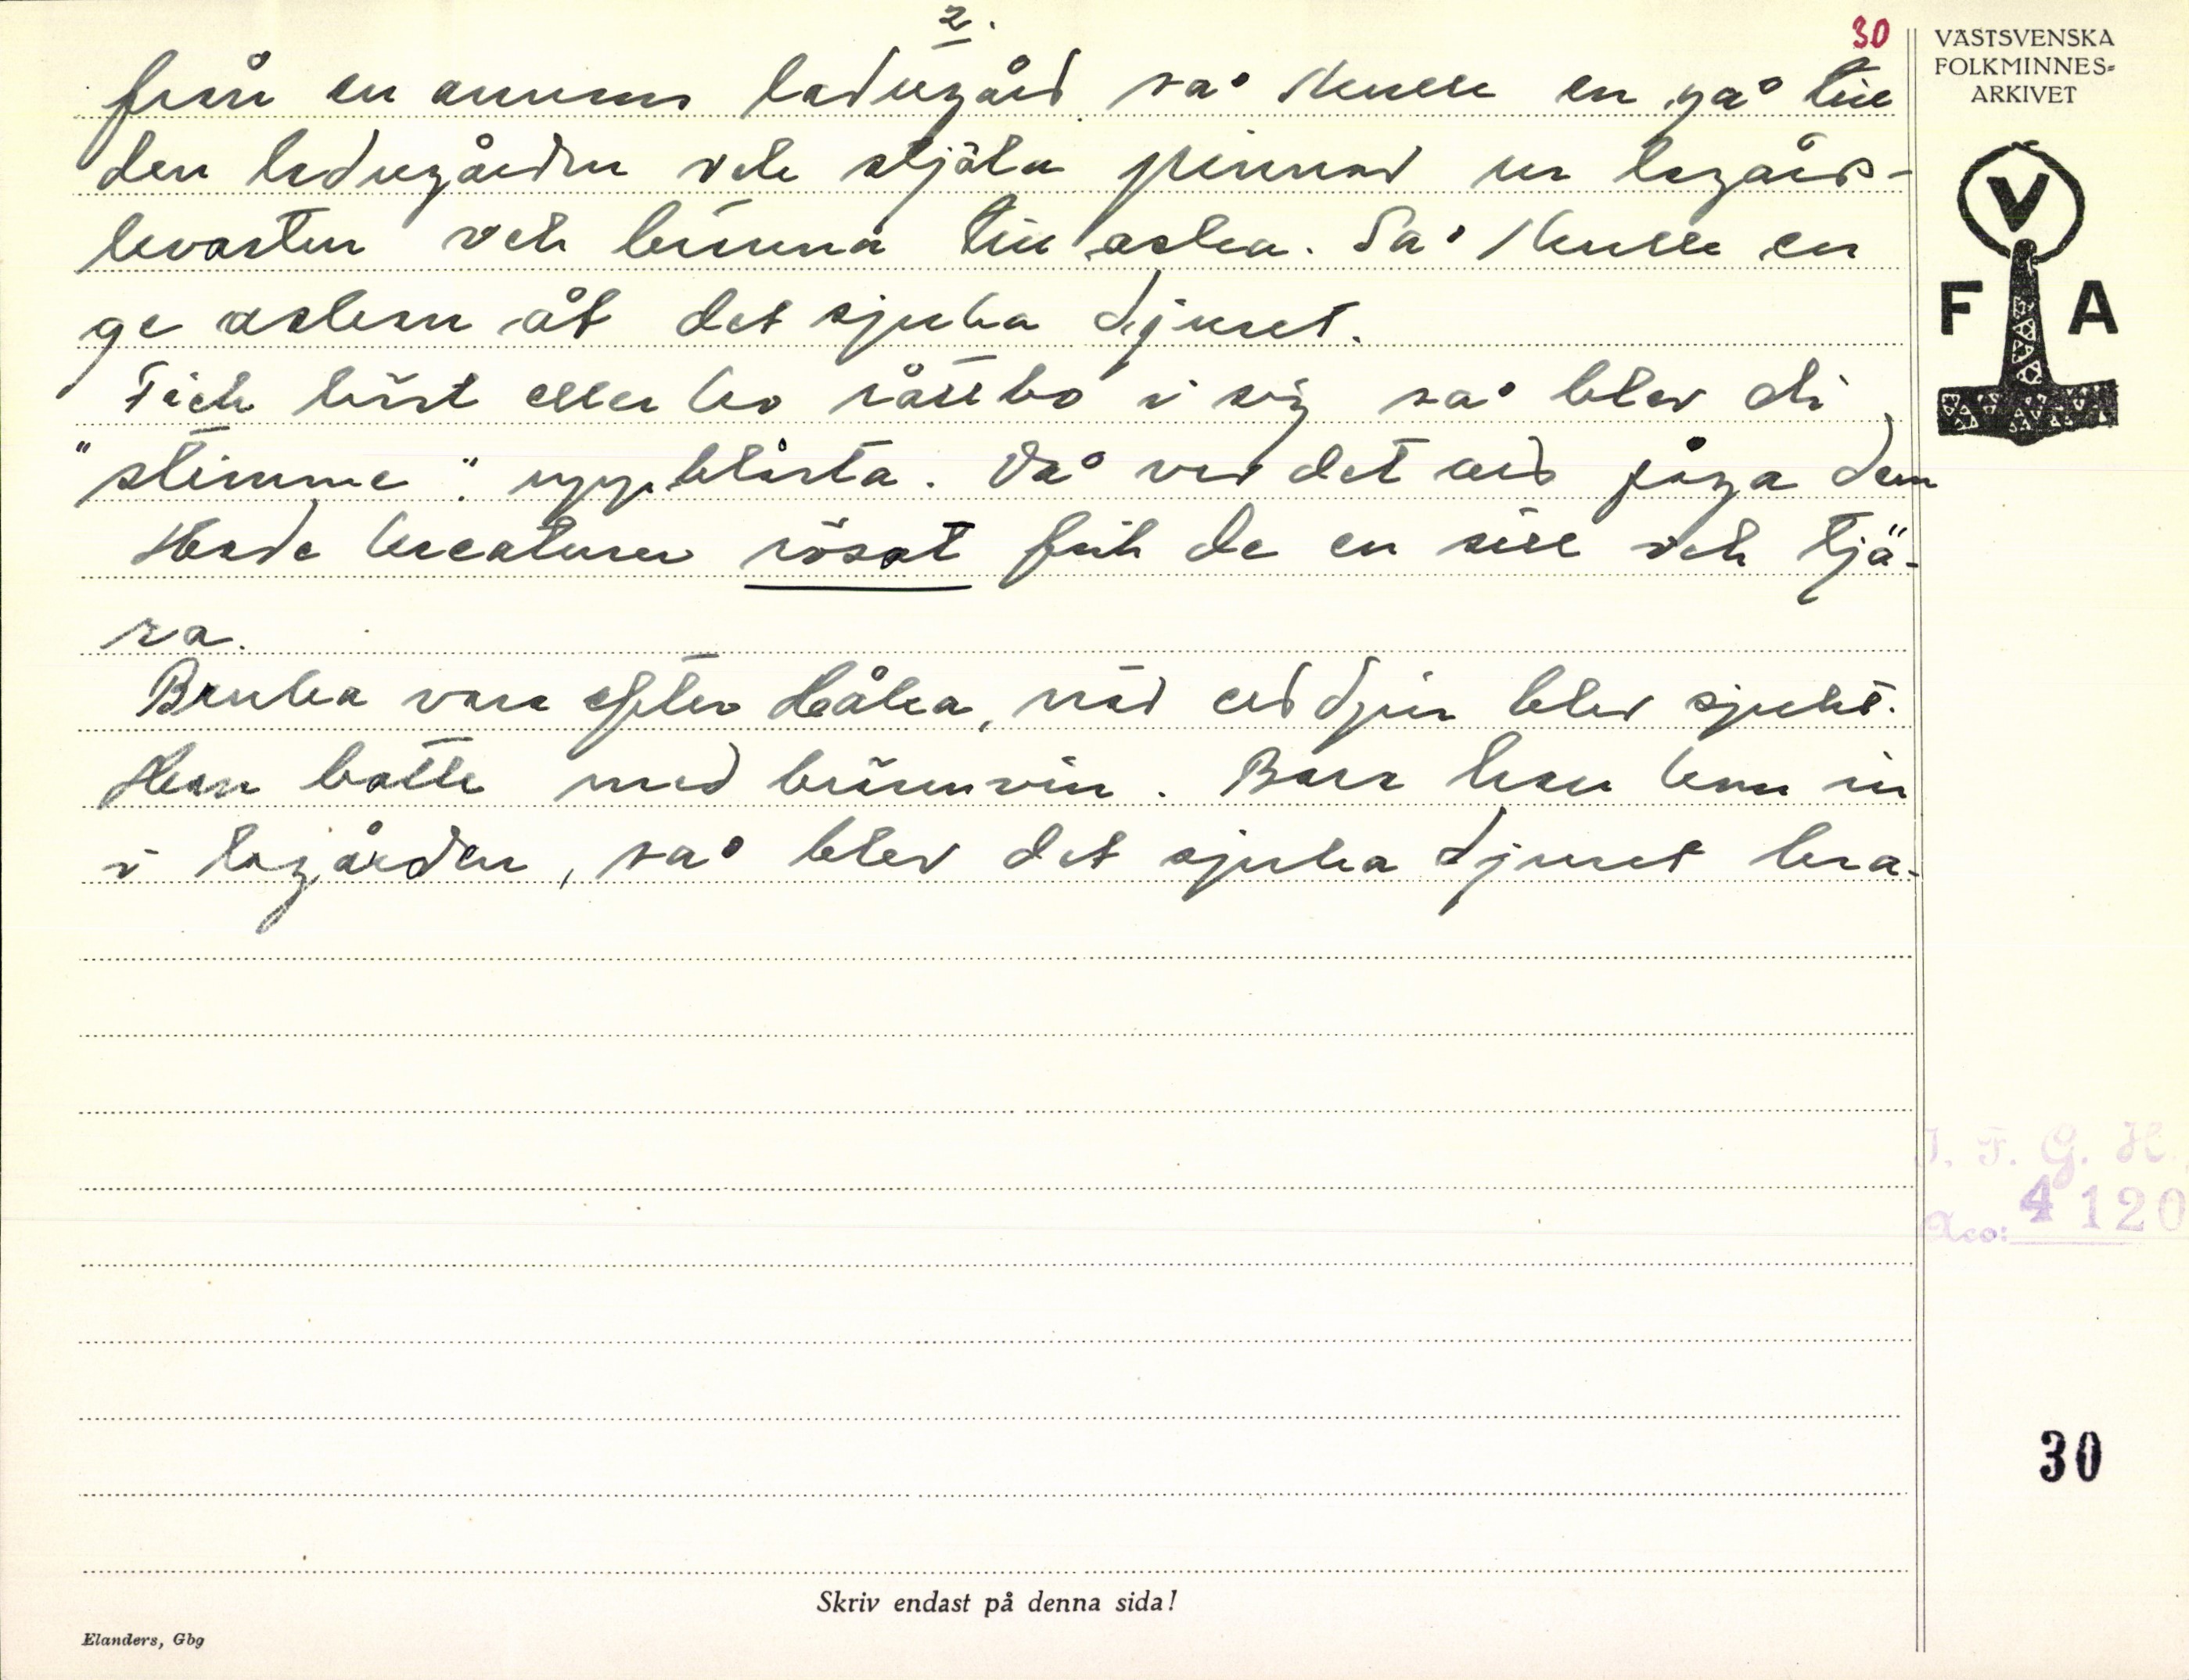 2.
30
från en annans ladugård så skulle en gå till
den ladugården och stjäla pinnar ur lagårds-
kvasten och bränna till aska. Så skulle en
ge askan åt det sjuka djuret.
Fick häst eller ko råttbo i sig så blev di
"stimme": uppblåsta. Då var det att jaga dem
Hade kreaturen rösat fick de en sill och tjä-
ra.
Bruka vara efter Håka, när ett djur blev sjukt.
Han botte med brännvin. Bara han kom in
i lagården, så blev det sjuka djuret bra.
VÄSTSVENSKA
FOLKMINNES-
ARKIVET
V
F A
I. F. G. H.
Acc: 4120
30
Skriv endast på denna sida!
Elanders, Gbg